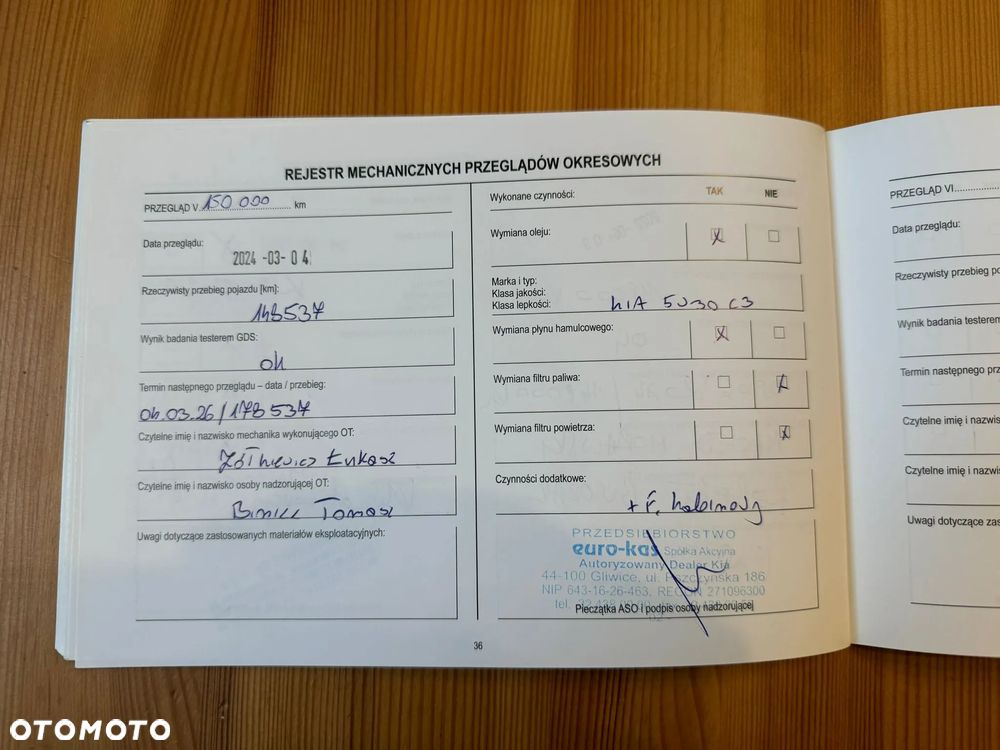 REJESTR MECHANICZNYCH PRZEGLĄDÓW OKRESOWYCH
PRZEGLĄD V 150 000 km
Data przeglądu:
2024 -03- 04
Rzeczywisty przebieg pojazdu [km]:
148537
Wynik badania testerem GDS:
ok
Termin następnego przeglądu – data / przebieg:
04.03.26/178537
Czytelne imię i nazwisko mechanika wykonującego OT:
Żółkiewicz Łukasz
Czytelne imię i nazwisko osoby nadzorującej OT:
Tomasz
Uwagi dotyczące zastosowanych materiałów eksploatacyjnych:
Wykonane czynności: TAK NIE
Wymiana oleju: X
Marka i typ:
Klasa jakości:
Klasa lepkości: KIA 5W30 C3
Wymiana płynu hamulcowego: X
Wymiana filtru paliwa: X
Wymiana filtru powietrza: X
Czynności dodatkowe:
+ F. kabinowy
PRZEDSIĘBIORSTWO
euro-kas Spółka Akcyjna
Autoryzowany Dealer Kia
44-100 Gliwice, ul. Pszczyńska 186
NIP 643-16-26-463, REGON 271096300
tel.
Pieczątka ASO i podpis osoby nadzorującej
36
PRZEGLĄD VI
Data przeglądu:
Rzeczywisty przebieg po
Wynik badania testerem
Termin następnego prze
Czytelne imię i nazwisko
Czytelne imię i nazwisko
Uwagi dotyczące zas
OTOMOTO